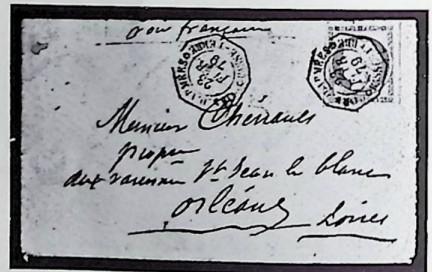 voie française
23
FEVR
79
23
79
Monsieur Chenault
propre
aux varennes St Jean le blanc
Orléans
Loiret